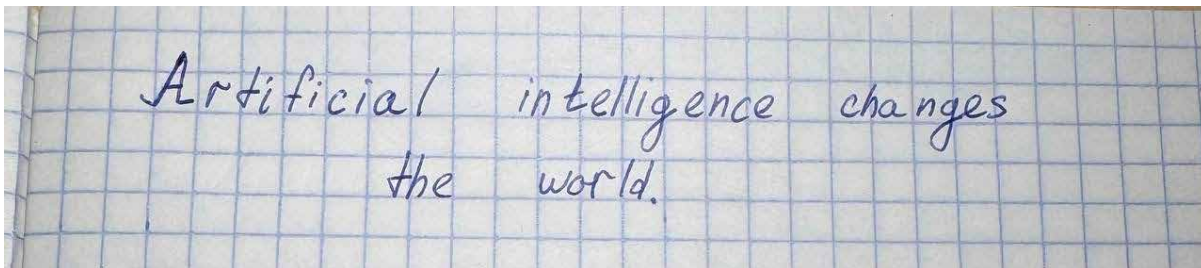 Artificial intelligence changes
the world.